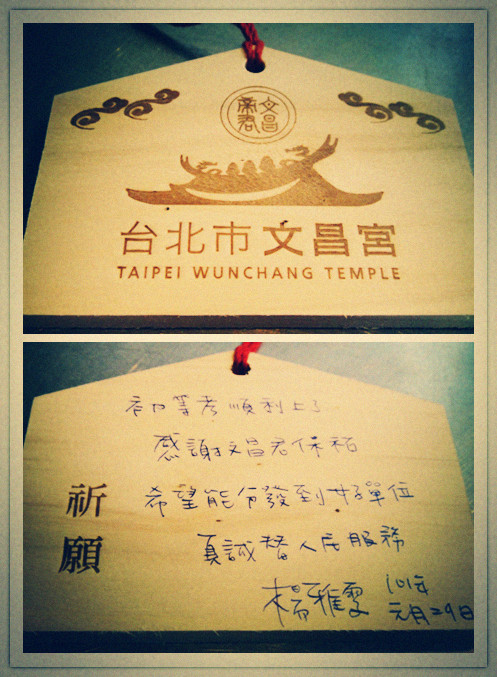 文昌帝君
台北市文昌宮
TAIPEI WUNCHANG TEMPLE
祈願
初等考順利上了
感謝文昌君保祐
希望能分發到好單位
真誠替人民服務
楊雅雯 101年
元月29日